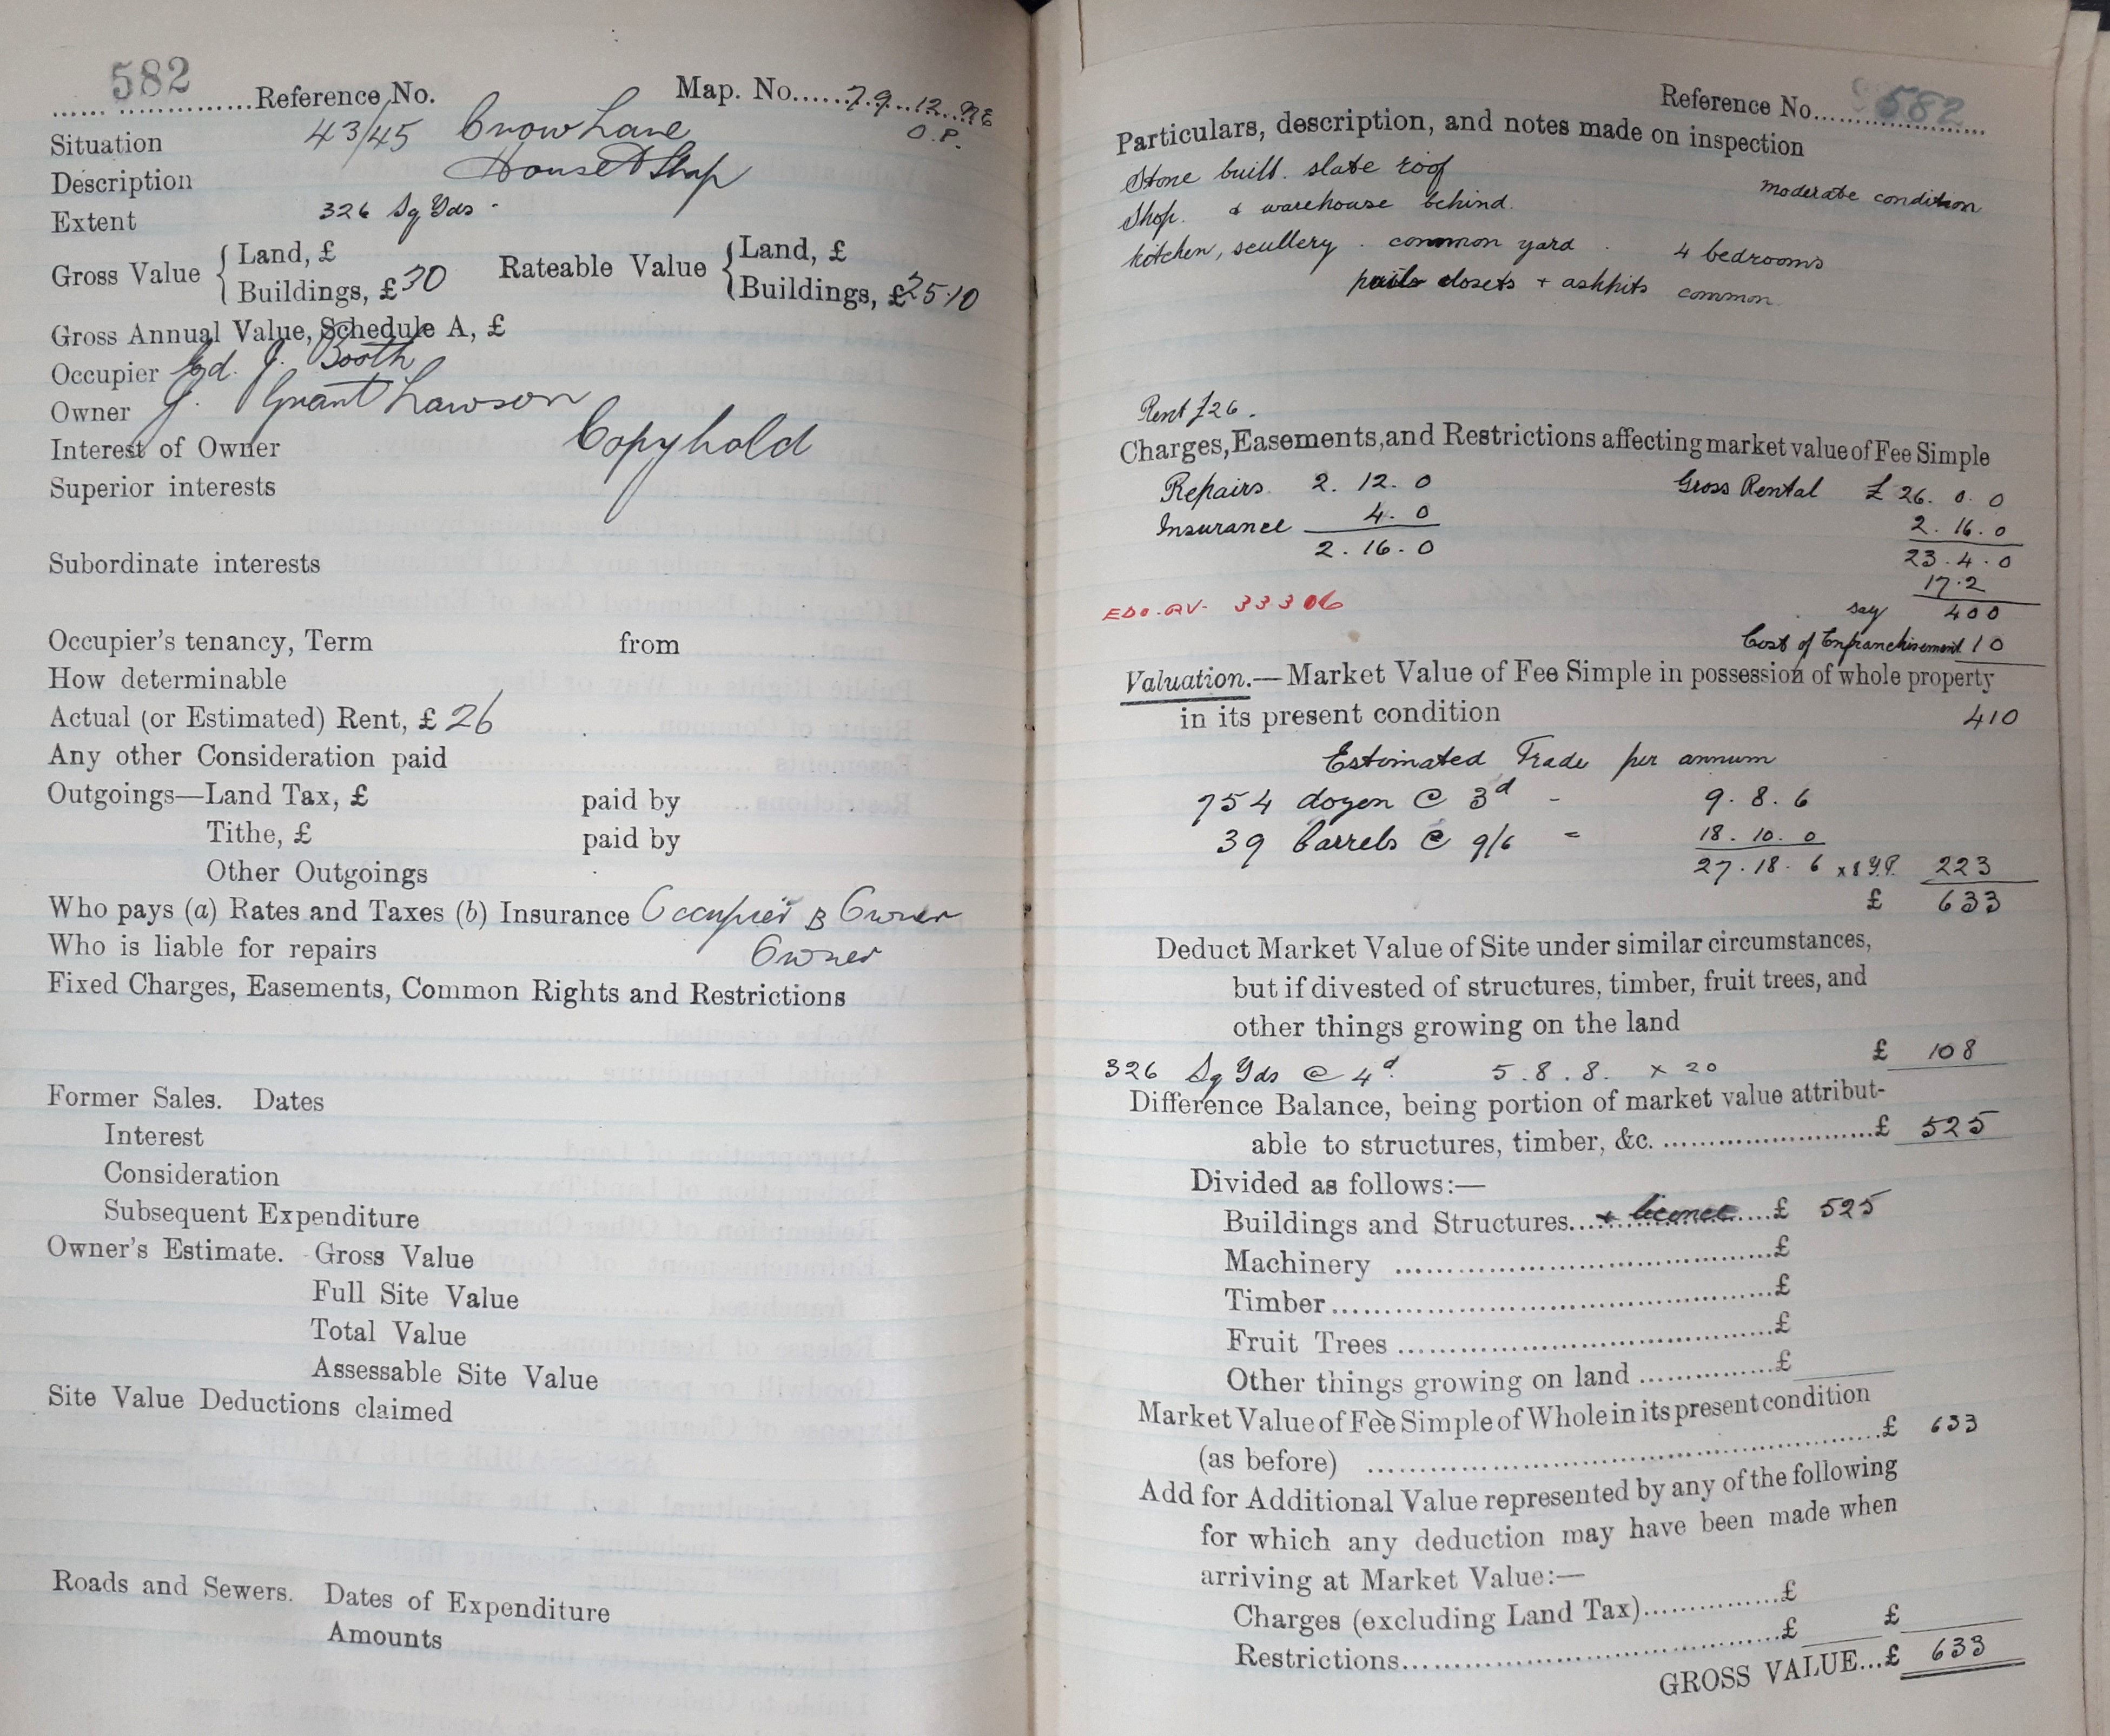 582 Reference No. Map. No. 79..12..NE
O.P.
Situation 43/45 Crow Lane
Description House & Shop
Extent 326 Sq Yds.
Gross Value { Land, £ Rateable Value { Land, £
Buildings, £30 Buildings, £25.10
Gross Annual Value, Schedule A, £
Occupier Ed. J. Booth
Owner J. Grant Lawson
Interest of Owner Copyhold
Superior interests
Subordinate interests
Occupier's tenancy, Term from
How determinable
Actual (or Estimated) Rent, £26
Any other Consideration paid
Outgoings—Land Tax, £ paid by
Tithe, £ paid by
Other Outgoings
Who pays (a) Rates and Taxes (b) Insurance Occupier B Owner
Who is liable for repairs Owner
Fixed Charges, Easements, Common Rights and Restrictions
Former Sales. Dates
Interest
Consideration
Subsequent Expenditure
Owner's Estimate. Gross Value
Full Site Value
Total Value
Assessable Site Value
Site Value Deductions claimed
Roads and Sewers. Dates of Expenditure
Amounts
Reference No. 582
Particulars, description, and notes made on inspection
Stone built. slate roof moderate condition
Shop. & warehouse behind.
kitchen, scullery. common yard. 4 bedrooms
pails closets + ashpits common.
Rent £26.
Charges, Easements, and Restrictions affecting market value of Fee Simple
Repairs. 2. 12. 0 Gross Rental £ 26. 0. 0
Insurance 4. 0 2. 16. 0
2. 16. 0 23. 4. 0
17.2
EDO. GV. 33306 say 400
Cost of Enfranchisement 10
Valuation.—Market Value of Fee Simple in possession of whole property
in its present condition 410
Estimated Trade per annum
754 dozen @ 3d - 9. 8. 6
39 barrels @ 9/6 = 18. 10. 0
27. 18. 6 x 8 Y.P. 223
£ 633
Deduct Market Value of Site under similar circumstances,
but if divested of structures, timber, fruit trees, and
other things growing on the land
326 Sq Yds @ 4d. 5. 8. 8. x 20 £ 108
Difference Balance, being portion of market value attribut-
able to structures, timber, &c. £ 525
Divided as follows:—
Buildings and Structures + licence £ 525
Machinery £
Timber £
Fruit Trees £
Other things growing on land £
Market Value of Fee Simple of Whole in its present condition
(as before) £ 633
Add for Additional Value represented by any of the following
for which any deduction may have been made when
arriving at Market Value:—
Charges (excluding Land Tax) £
Restrictions £ £
GROSS VALUE...£ 633